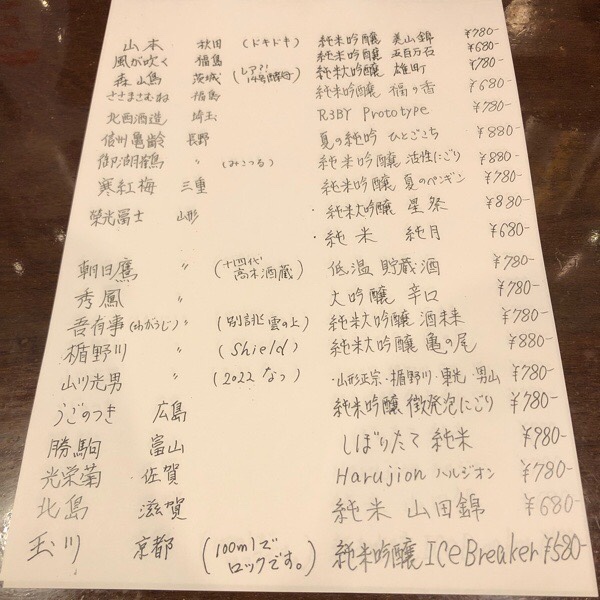 山本 秋田 (ドキドキ) 純米吟醸 美山錦 ¥780-
風が吹く 福島 純米吟醸 五百万石 ¥680-
森嶋 茨城 (レア!! 14号酵母) 純米大吟醸 雄町 ¥780-
ささまさむね 福島 純米吟醸 福の香 ¥680-
北西酒造 埼玉 R3BY Prototype ¥780-
信州亀齢 長野 夏の純吟 ひとごこち ¥880-
御湖鶴 〃 (みこつる) 純米吟醸 活性にごり ¥880-
寒紅梅 三重 純米吟醸 夏のペンギン ¥780-
榮光冨士 山形 ・純米大吟醸 星祭 ¥880-
・純米 純月 ¥680-
朝日鷹 〃 (十四代 高木酒蔵) 低温貯蔵酒 ¥780-
秀鳳 〃 大吟醸 辛口 ¥780-
吾有事(わがうじ) 〃 (別誂 雲の上) 純米大吟醸 酒未来 ¥780-
楯野川 〃 (Shield) 純米大吟醸 亀の尾 ¥880-
山川光男 〃 (2022 なつ) ・山形正宗・楯野川・東光・男山 ¥780-
うごのつき 広島 純米吟醸 微発泡にごり ¥780-
勝駒 富山 しぼりたて 純米 ¥980-
光栄菊 佐賀 Harujion ハルジオン ¥780-
北島 滋賀 純米 山田錦 ¥680-
玉川 京都 (100mlで ロックです。) 純米吟醸 Ice Breaker ¥580-